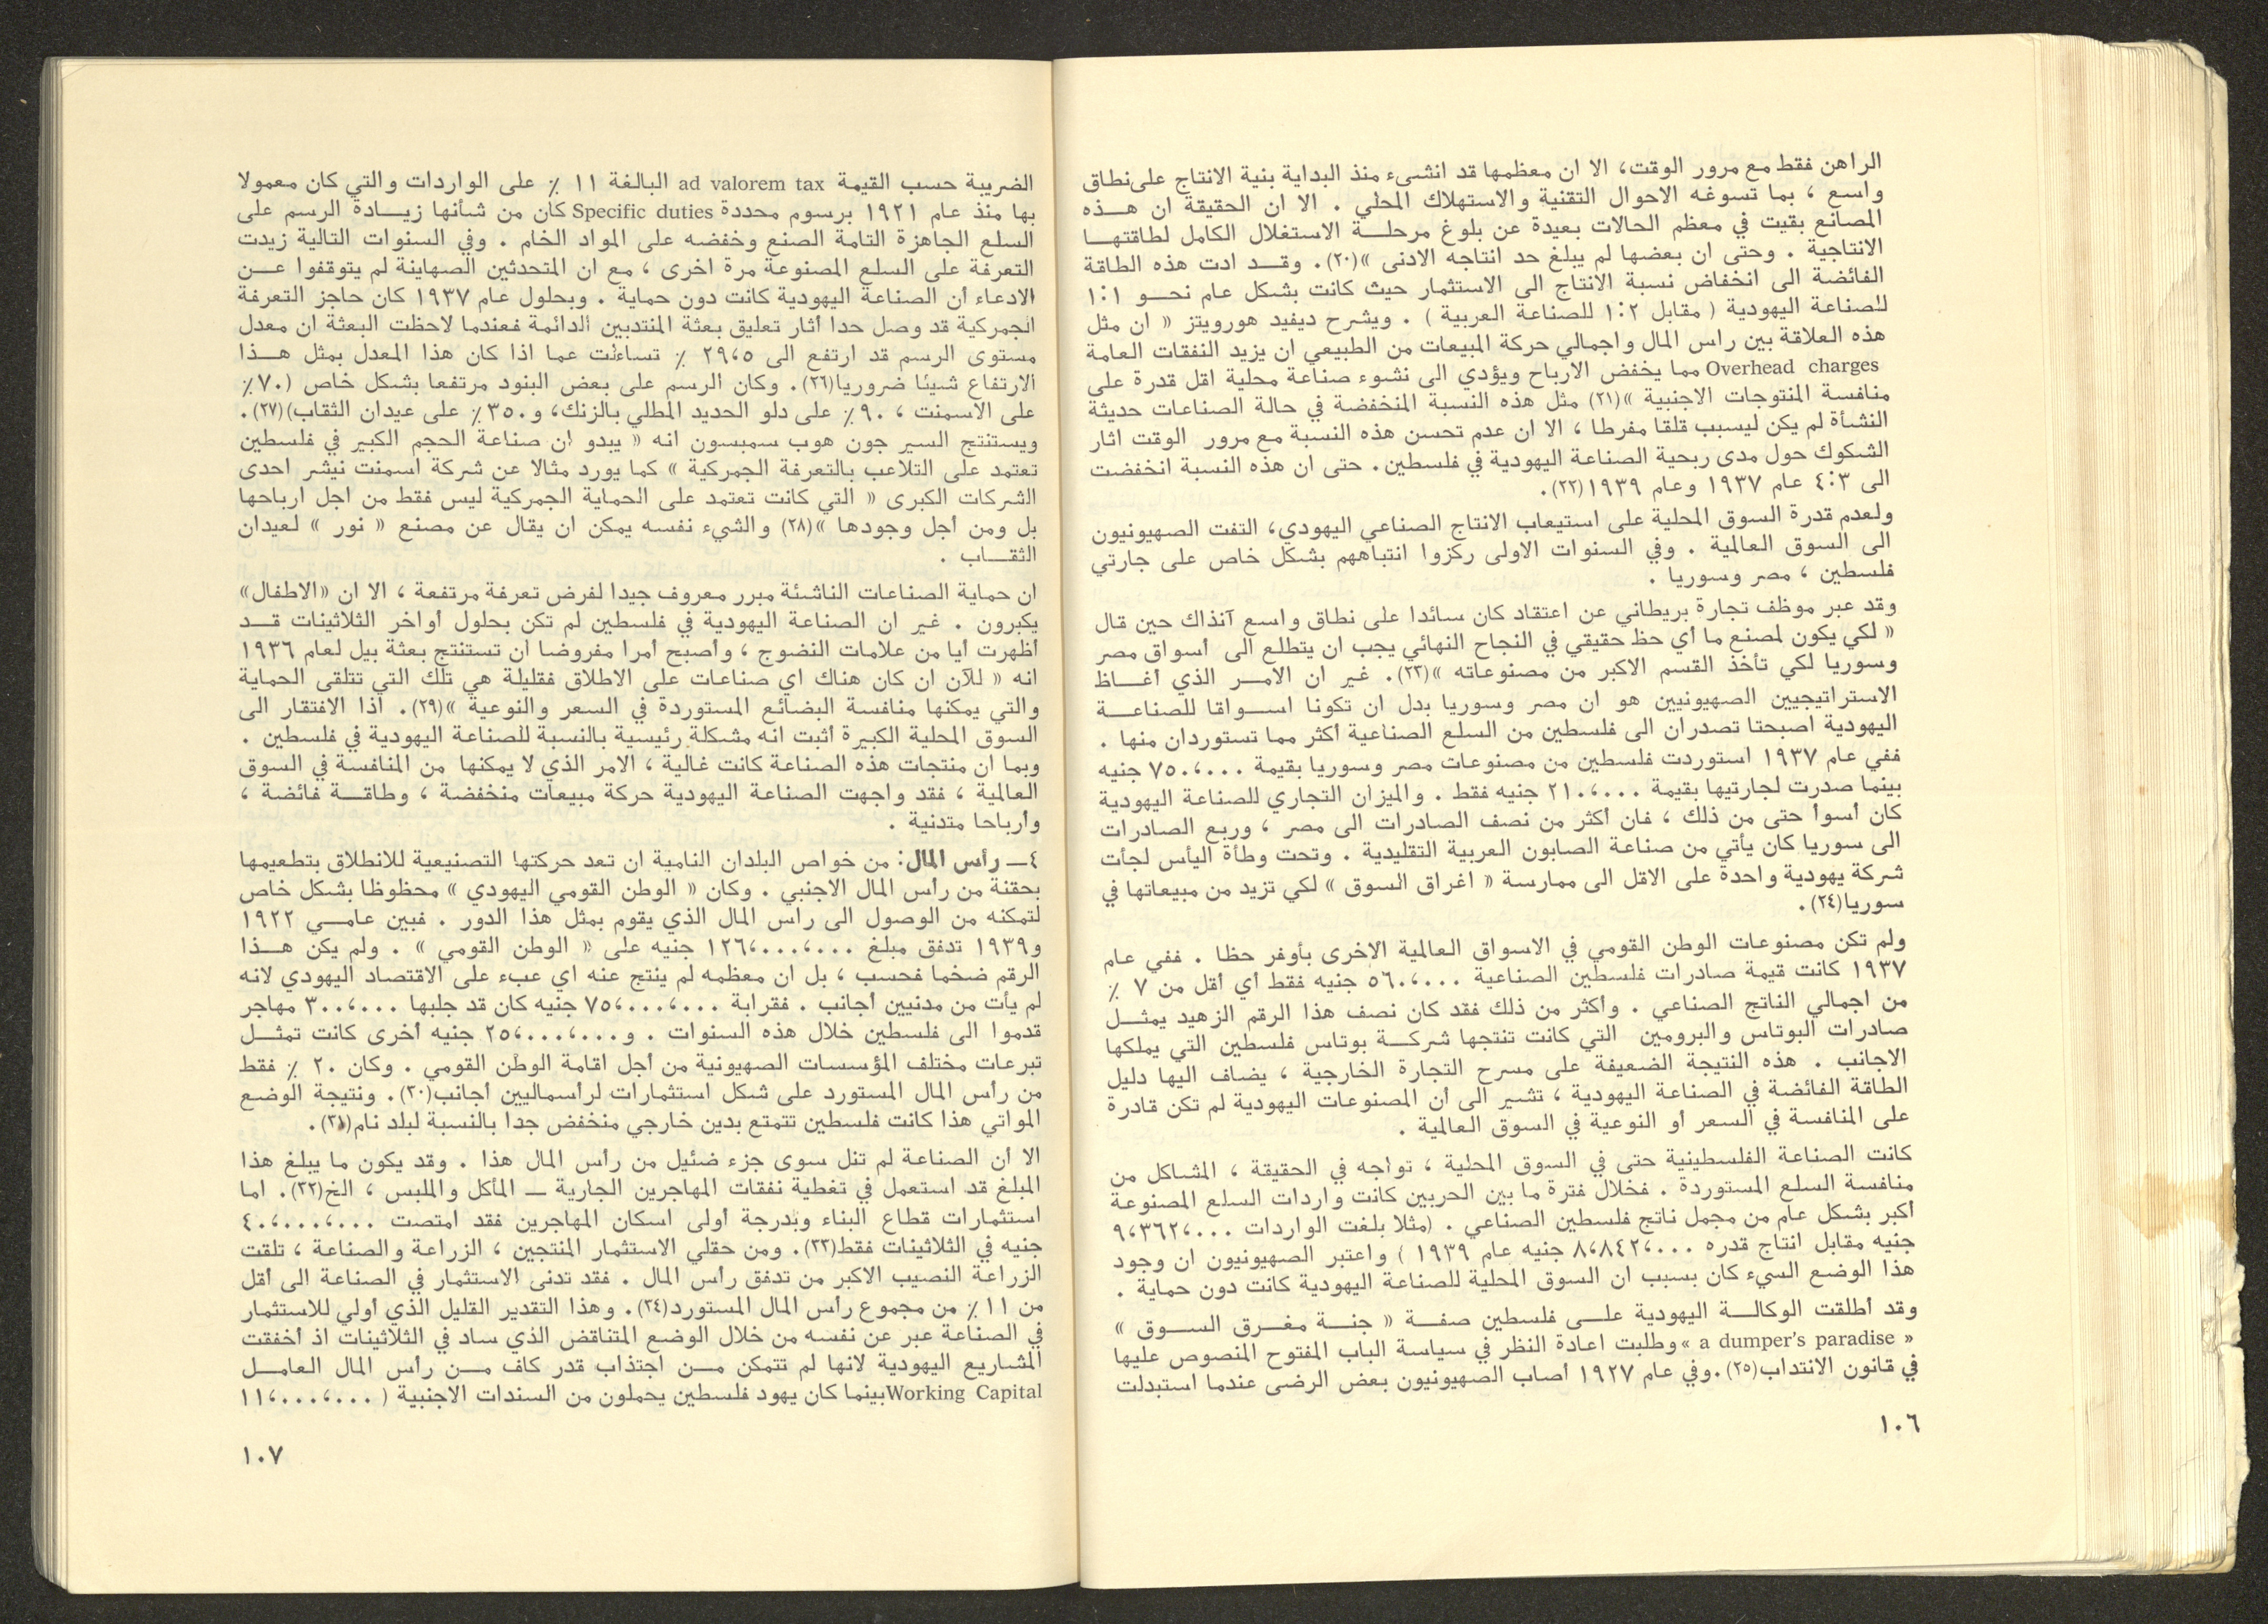 الراهن فقط مع مرور الوقت، الا ان معظمها قد انشىء منذ البداية بنية الانتاج على نطاق
واسع ، بما تسوغه الاحوال التقنية والاستهلاك المحلي . الا ان الحقيقة ان هذه
المصانع بقيت في معظم الحالات بعيدة عن بلوغ مرحلة الاستغلال الكامل لطاقتها
الانتاجية . وحتى ان بعضها لم يبلغ حد انتاجه الادنى »(٢٠). وقد ادت هذه الطاقة
الفائضة الى انخفاض نسبة الانتاج الى الاستثمار حيث كانت بشكل عام نحو ١:١
للصناعة اليهودية ( مقابل ١:٢ للصناعة العربية ) . ويشرح ديفيد هورويتز « ان مثل
هذه العلاقة بين راس المال واجمالي حركة المبيعات من الطبيعي ان يزيد النفقات العامة
Overhead charges مما يخفض الارباح ويؤدي الى نشوء صناعة محلية اقل قدرة على
منافسة المنتوجات الاجنبية »(٢١) مثل هذه النسبة المنخفضة في حالة الصناعات حديثة
النشأة لم يكن ليسبب قلقا مفرطا ، الا ان عدم تحسن هذه النسبة مع مرور الوقت اثار
الشكوك حول مدى ربحية الصناعة اليهودية في فلسطين. حتى ان هذه النسبة انخفضت
الى ٤:٣ عام ١٩٣٧ وعام ١٩٣٩(٢٢).
ولعدم قدرة السوق المحلية على استيعاب الانتاج الصناعي اليهودي، التفت الصهيونيون
الى السوق العالمية . وفي السنوات الاولى ركزوا انتباههم بشكل خاص على جارتي
فلسطين ، مصر وسوريا .
وقد عبر موظف تجارة بريطاني عن اعتقاد كان سائدا على نطاق واسع آنذاك حين قال
« لكي يكون لمصنع ما أي حظ حقيقي في النجاح النهائي يجب ان يتطلع الى أسواق مصر
وسوريا لكي تأخذ القسم الاكبر من مصنوعاته »(٢٣). غير ان الامر الذي أغاظ
الاستراتيجيين الصهيونيين هو ان مصر وسوريا بدل ان تكونا اسواقا للصناعة
اليهودية اصبحتا تصدران الى فلسطين من السلع الصناعية أكثر مما تستوردان منها .
ففي عام ١٩٣٧ استوردت فلسطين من مصنوعات مصر وسوريا بقيمة ٧٥٠،٠٠٠ جنيه
بينما صدرت لجارتيها بقيمة ٢١٠،٠٠٠ جنيه فقط . والميزان التجاري للصناعة اليهودية
كان أسوأ حتى من ذلك ، فان أكثر من نصف الصادرات الى مصر ، وربع الصادرات
الى سوريا كان يأتي من صناعة الصابون العربية التقليدية . وتحت وطأة اليأس لجأت
شركة يهودية واحدة على الاقل الى ممارسة « اغراق السوق » لكي تزيد من مبيعاتها في
سوريا(٢٤).
ولم تكن مصنوعات الوطن القومي في الاسواق العالمية الاخرى بأوفر حظا . ففي عام
١٩٣٧ كانت قيمة صادرات فلسطين الصناعية ٥٦٠،٠٠٠ جنيه فقط أي أقل من ٧ ٪
من اجمالي الناتج الصناعي . وأكثر من ذلك فقد كان نصف هذا الرقم الزهيد يمثل
صادرات البوتاس والبرومين التي كانت تنتجها شركة بوتاس فلسطين التي يملكها
الاجانب . هذه النتيجة الضعيفة على مسرح التجارة الخارجية ، يضاف اليها دليل
الطاقة الفائضة في الصناعة اليهودية ، تشير الى أن المصنوعات اليهودية لم تكن قادرة
على المنافسة في السعر أو النوعية في السوق العالمية .
كانت الصناعة الفلسطينية حتى في السوق المحلية ، تواجه في الحقيقة ، المشاكل من
منافسة السلع المستوردة . فخلال فترة ما بين الحربين كانت واردات السلع المصنوعة
أكبر بشكل عام من مجمل ناتج فلسطين الصناعي . (مثلا بلغت الواردات ٩،٣٦٢،٠٠٠
جنيه مقابل انتاج قدره ٨،٨٤٢،٠٠٠ جنيه عام ١٩٣٩ ) واعتبر الصهيونيون ان وجود
هذا الوضع السيء كان بسبب ان السوق المحلية للصناعة اليهودية كانت دون حماية .
وقد أطلقت الوكالة اليهودية على فلسطين صفة « جنة مغرق السوق »
« a dumper's paradise » وطلبت اعادة النظر في سياسة الباب المفتوح المنصوص عليها
في قانون الانتداب(٢٥).وفي عام ١٩٢٧ أصاب الصهيونيون بعض الرضى عندما استبدلت
١٠٦
الضريبة حسب القيمة ad valorem tax البالغة ١١ ٪ على الواردات والتي كان معمولا
بها منذ عام ١٩٢١ برسوم محددة Specific duties كان من شأنها زيادة الرسم على
السلع الجاهزة التامة الصنع وخفضه على المواد الخام . وفي السنوات التالية زيدت
التعرفة على السلع المصنوعة مرة اخرى ، مع ان المتحدثين الصهاينة لم يتوقفوا عن
الادعاء أن الصناعة اليهودية كانت دون حماية . وبحلول عام ١٩٣٧ كان حاجز التعرفة
الجمركية قد وصل حدا أثار تعليق بعثة المنتدبين الدائمة فعندما لاحظت البعثة ان معدل
مستوى الرسم قد ارتفع الى ٢٩،٥ ٪ تساءلت عما اذا كان هذا المعدل بمثل هذا
الارتفاع شيئا ضروريا(٢٦). وكان الرسم على بعض البنود مرتفعا بشكل خاص (٧٠٪
على الاسمنت ، ٩٠٪ على دلو الحديد المطلي بالزنك، و٣٥٠٪ على عيدان الثقاب)(٢٧).
ويستنتج السير جون هوب سمبسون انه « يبدو ان صناعة الحجم الكبير في فلسطين
تعتمد على التلاعب بالتعرفة الجمركية » كما يورد مثالا عن شركة اسمنت نيشر احدى
الشركات الكبرى « التي كانت تعتمد على الحماية الجمركية ليس فقط من اجل ارباحها
بل ومن أجل وجودها »(٢٨) والشيء نفسه يمكن ان يقال عن مصنع « نور » لعيدان
الثقاب .
ان حماية الصناعات الناشئة مبرر معروف جيدا لفرض تعرفة مرتفعة ، الا ان «الاطفال»
يكبرون . غير ان الصناعة اليهودية في فلسطين لم تكن بحلول أواخر الثلاثينات قد
أظهرت أيا من علامات النضوج ، وأصبح أمرا مفروضا ان تستنتج بعثة بيل لعام ١٩٣٦
انه « للآن ان كان هناك اي صناعات على الاطلاق فقليلة هي تلك التي تتلقى الحماية
والتي يمكنها منافسة البضائع المستوردة في السعر والنوعية »(٢٩). اذا الافتقار الى
السوق المحلية الكبيرة أثبت انه مشكلة رئيسية بالنسبة للصناعة اليهودية في فلسطين .
وبما ان منتجات هذه الصناعة كانت غالية ، الامر الذي لا يمكنها من المنافسة في السوق
العالمية ، فقد واجهت الصناعة اليهودية حركة مبيعات منخفضة ، وطاقة فائضة ،
وأرباحا متدنية .
٤ـ رأس المال: من خواص البلدان النامية ان تعد حركتها التصنيعية للانطلاق بتطعيمها
بحقنة من رأس المال الاجنبي . وكان « الوطن القومي اليهودي » محظوظا بشكل خاص
لتمكنه من الوصول الى راس المال الذي يقوم بمثل هذا الدور . فبين عامي ١٩٢٢
و١٩٣٩ تدفق مبلغ ١٢٦،٠٠٠،٠٠٠ جنيه على « الوطن القومي » . ولم يكن هذا
الرقم ضخما فحسب ، بل ان معظمه لم ينتج عنه اي عبء على الاقتصاد اليهودي لانه
لم يأت من مدنيين أجانب . فقرابة ٧٥،٠٠٠،٠٠٠ جنيه كان قد جلبها ٣٠٠،٠٠٠ مهاجر
قدموا الى فلسطين خلال هذه السنوات . و٢٥،٠٠٠،٠٠٠ جنيه أخرى كانت تمثل
تبرعات مختلف المؤسسات الصهيونية من أجل اقامة الوطن القومي . وكان ٢٠ ٪ فقط
من رأس المال المستورد على شكل استثمارات لرأسماليين أجانب(٣٠). ونتيجة الوضع
المواتي هذا كانت فلسطين تتمتع بدين خارجي منخفض جدا بالنسبة لبلد نام(٣١).
الا أن الصناعة لم تنل سوى جزء ضئيل من رأس المال هذا . وقد يكون ما يبلغ هذا
المبلغ قد استعمل في تغطية نفقات المهاجرين الجارية ـ المأكل والملبس ، الخ(٣٢). اما
استثمارات قطاع البناء وبدرجة أولى اسكان المهاجرين فقد امتصت ٤٠،٠٠٠،٠٠٠
جنيه في الثلاثينات فقط(٣٣). ومن حقلي الاستثمار المنتجين ، الزراعة والصناعة ، تلقت
الزراعة النصيب الاكبر من تدفق رأس المال . فقد تدنى الاستثمار في الصناعة الى أقل
من ١١ ٪ من مجموع رأس المال المستورد(٣٤). وهذا التقدير القليل الذي أولي للاستثمار
في الصناعة عبر عن نفسه من خلال الوضع المتناقض الذي ساد في الثلاثينات اذ أخفقت
المشاريع اليهودية لانها لم تتمكن من اجتذاب قدر كاف من رأس المال العامل
Working Capital بينما كان يهود فلسطين يحملون من السندات الاجنبية ( ١١،٠٠٠،٠٠٠
١٠٧